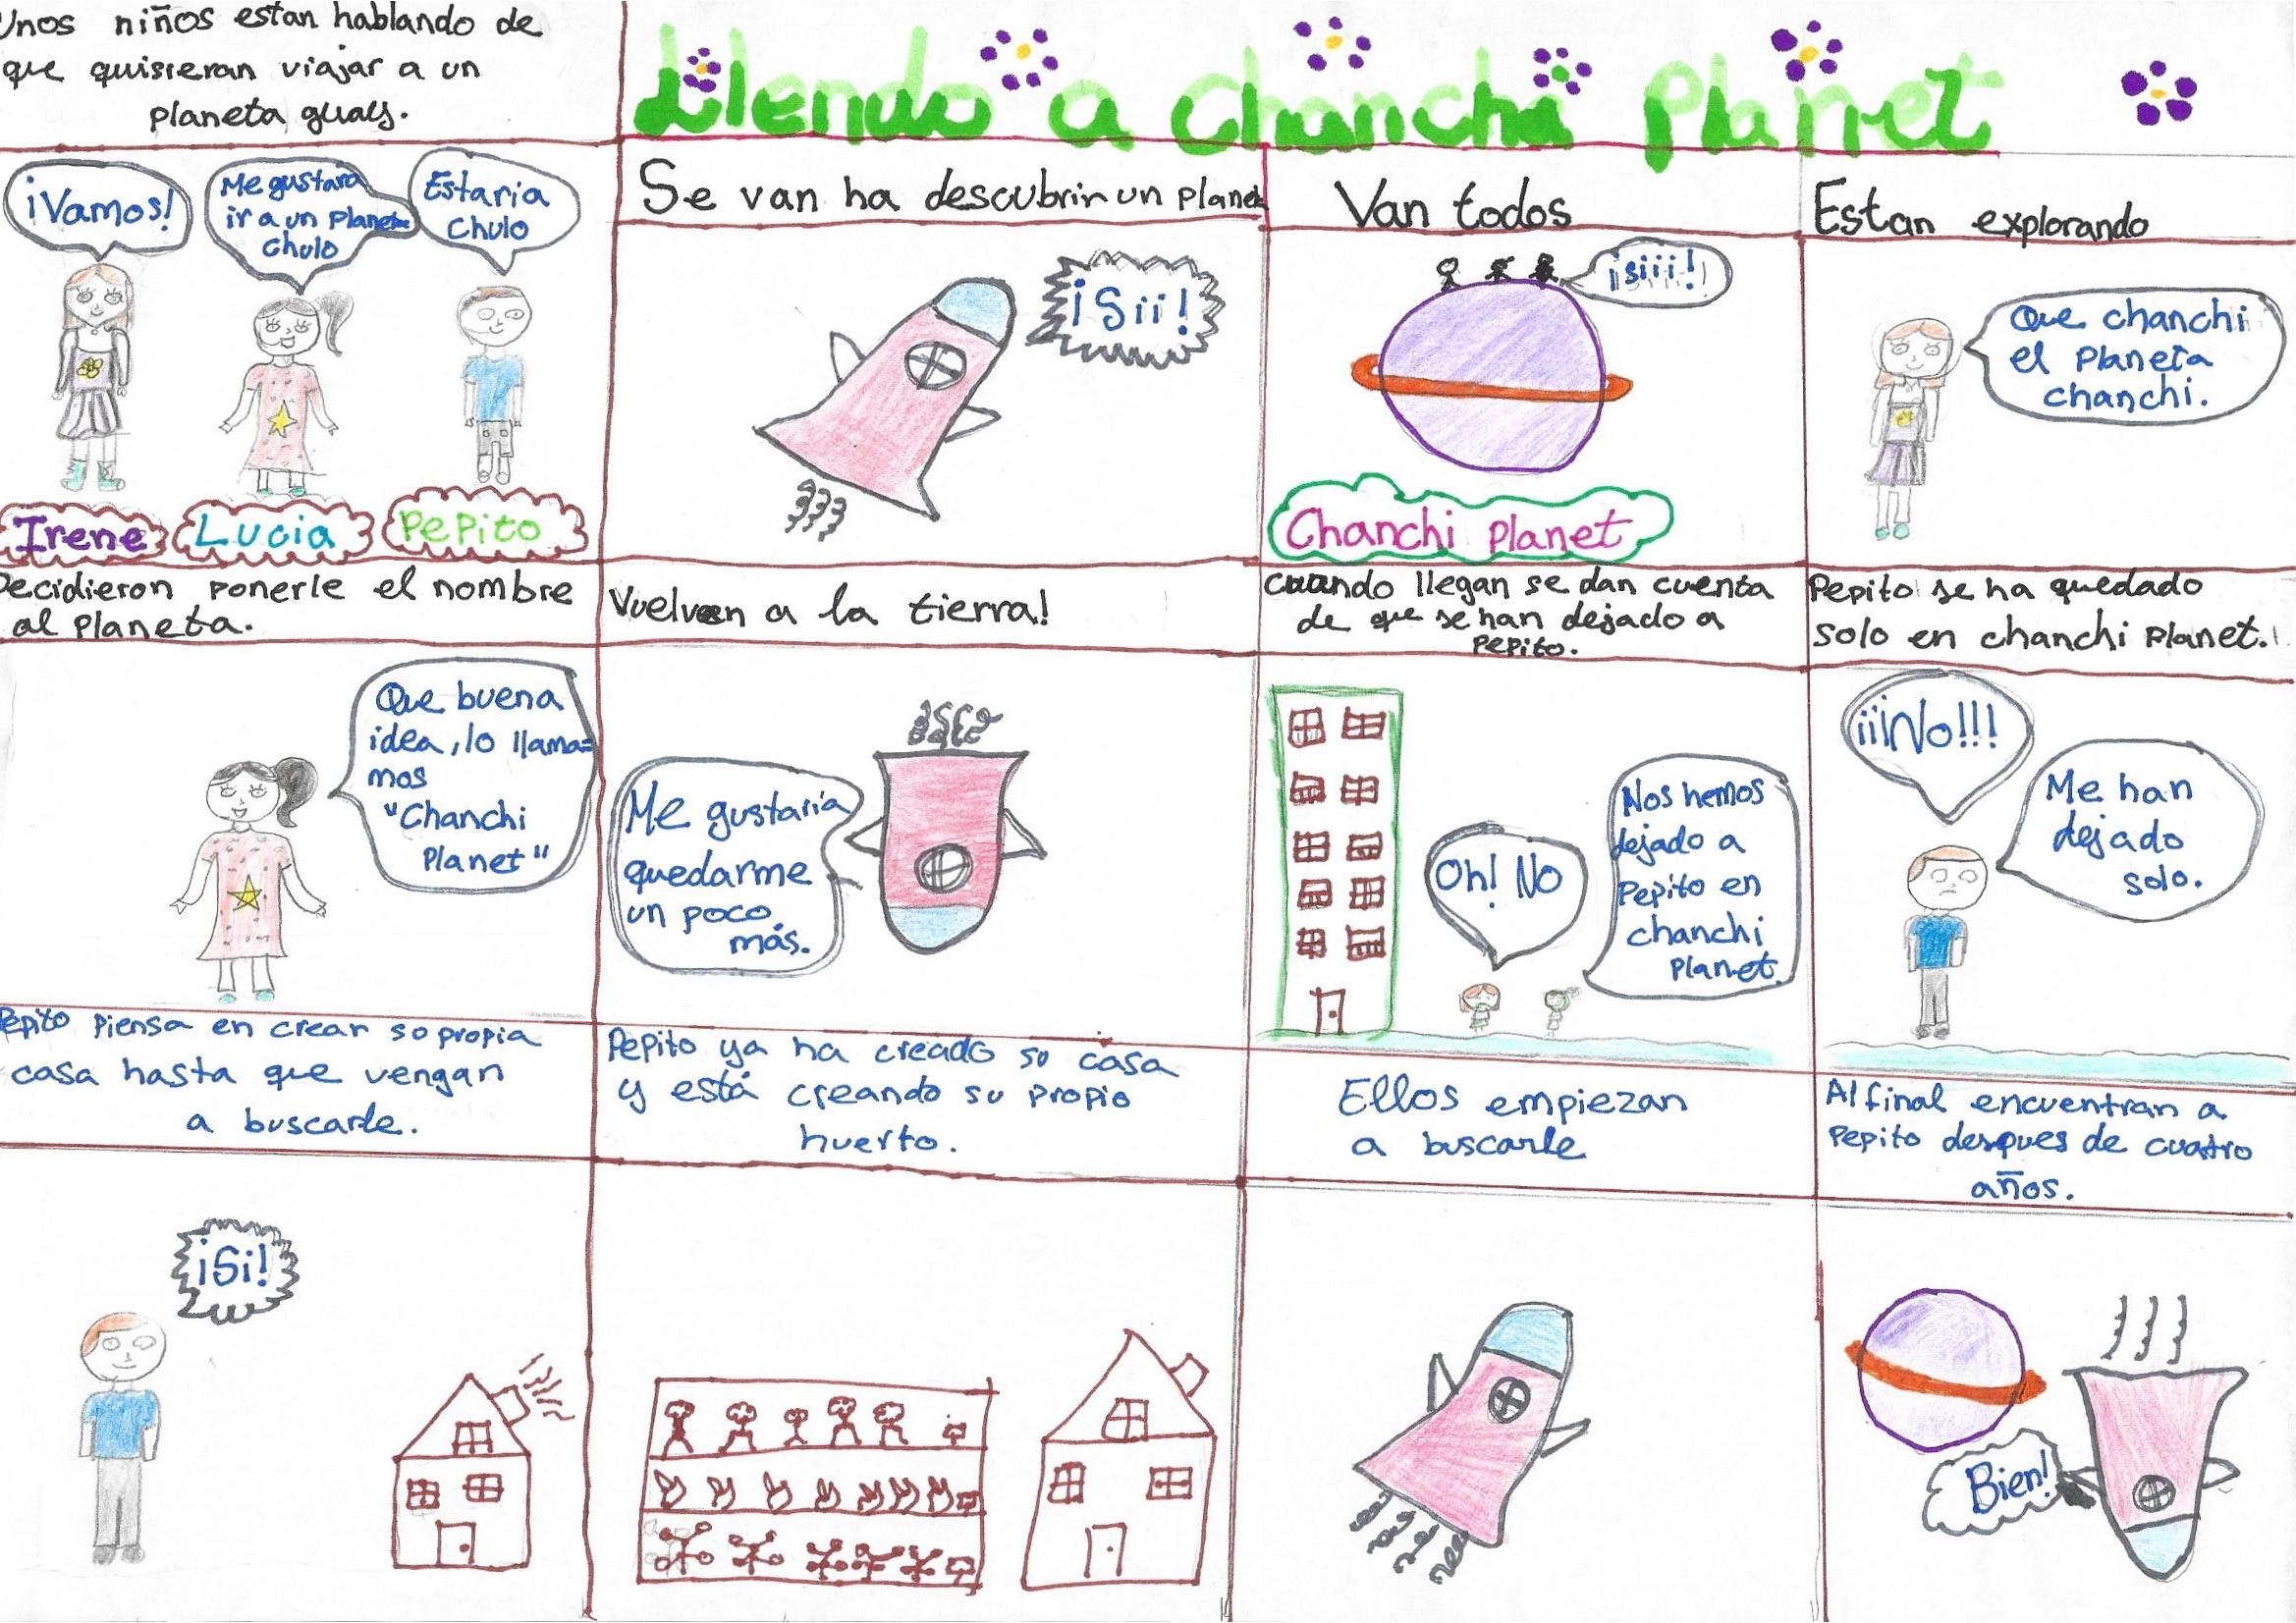 Unos niños estan hablando de
que quisieran viajar a un
planeta guays.
Llendo a Chanchi Planet
¡Vamos!
Me gustara
ir a un Planeta
chulo
Estaria
chulo
Irene
Lucia
Pepito
Se van ha descubrir un planet
¡Sii!
Van todos
¡siii!
Chanchi Planet
Estan explorando
Que chanchi
el Planeta
chanchi.
Decidieron ponerle el nombre
al Planeta.
Que buena
idea, lo llama=
mos
"Chanchi
Planet"
Vuelven a la tierra!
Me gustaria
quedarme
un poco
más.
Cuando llegan se dan cuenta
de que se han dejado a
Pepito.
Oh! No
Nos hemos
dejado a
Pepito en
chanchi
Planet.
Pepito se ha quedado
solo en chanchi Planet.
¡¡¡No!!!
Me han
dejado
solo.
Pepito Piensa en crear so propia
casa hasta que vengan
a buscarle.
¡Si!
Pepito ya ha creado su casa
y está creando su propio
huerto.
Ellos empiezan
a buscarle
Al final encuentran a
Pepito despues de cuatro
años.
Bien!